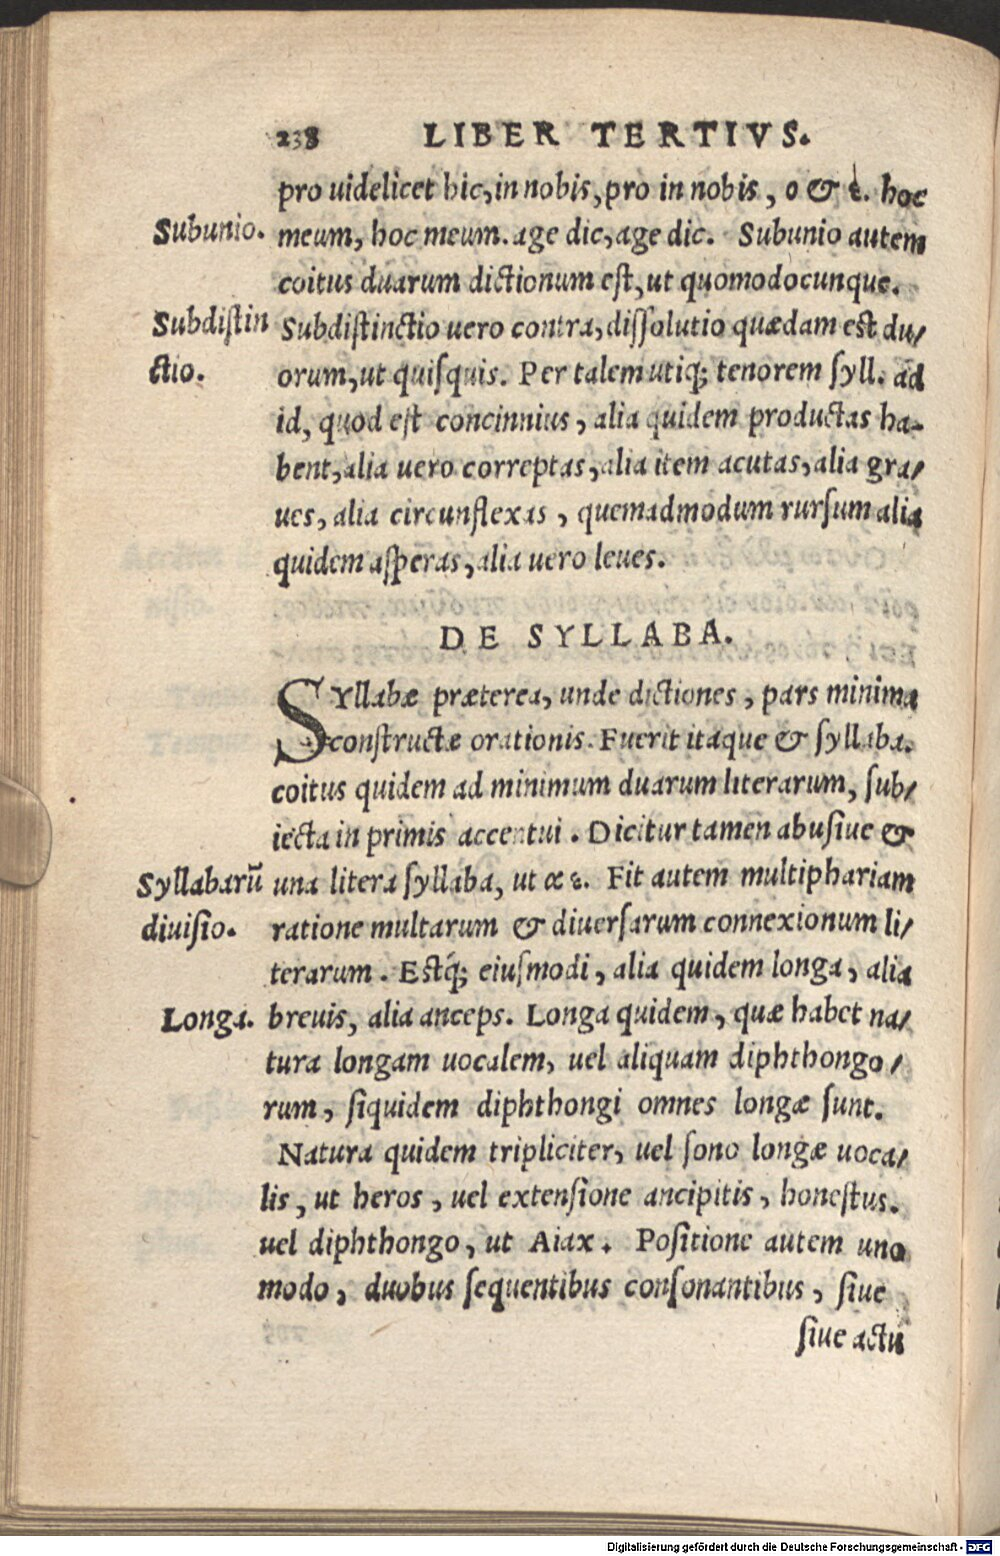 238 LIBER TERTIVS.
pro uidelicet hic, in nobis, pro in nobis, o & ε. hoc
Subunio. meum, hoc meum. age dic, age dic. Subunio autem
coitus duarum dictionum est, ut quomodocunque.
Subdistin Subdistinctio uero contra, dissolutio quædam est du/
ctio. orum, ut quisquis. Per talem utiq; tenorem syll. ad
id, quod est concinnius, alia quidem productas ha-
bent, alia uero correptas, alia item acutas, alia gra/
ues, alia circunflexas, quemadmodum rursum alia
quidem asperas, alia uero leues.
DE SYLLABA.
SYllabæ præterea, unde dictiones, pars minima
constructæ orationis. Fuerit itaque & syllaba.
coitus quidem ad minimum duarum literarum, sub/
iecta in primis accentui. Dicitur tamen abusiue &
Syllabarũ una litera syllaba, ut α ε. Fit autem multiphariam
diuisio. ratione multarum & diuersarum connexionum li/
terarum. Estq́; eiusmodi, alia quidem longa, alia
Longa. breuis, alia anceps. Longa quidem, quæ habet na/
tura longam uocalem, uel aliquam diphthongo/
rum, siquidem diphthongi omnes longæ sunt.
Natura quidem tripliciter, uel sono longæ uoca/
lis, ut heros, uel extensione ancipitis, honestus.
uel diphthongo, ut Aiax. Positione autem uno
modo, duobus sequentibus consonantibus, siue
siue actu
Digitalisierung gefördert durch die Deutsche Forschungsgemeinschaft - DFG